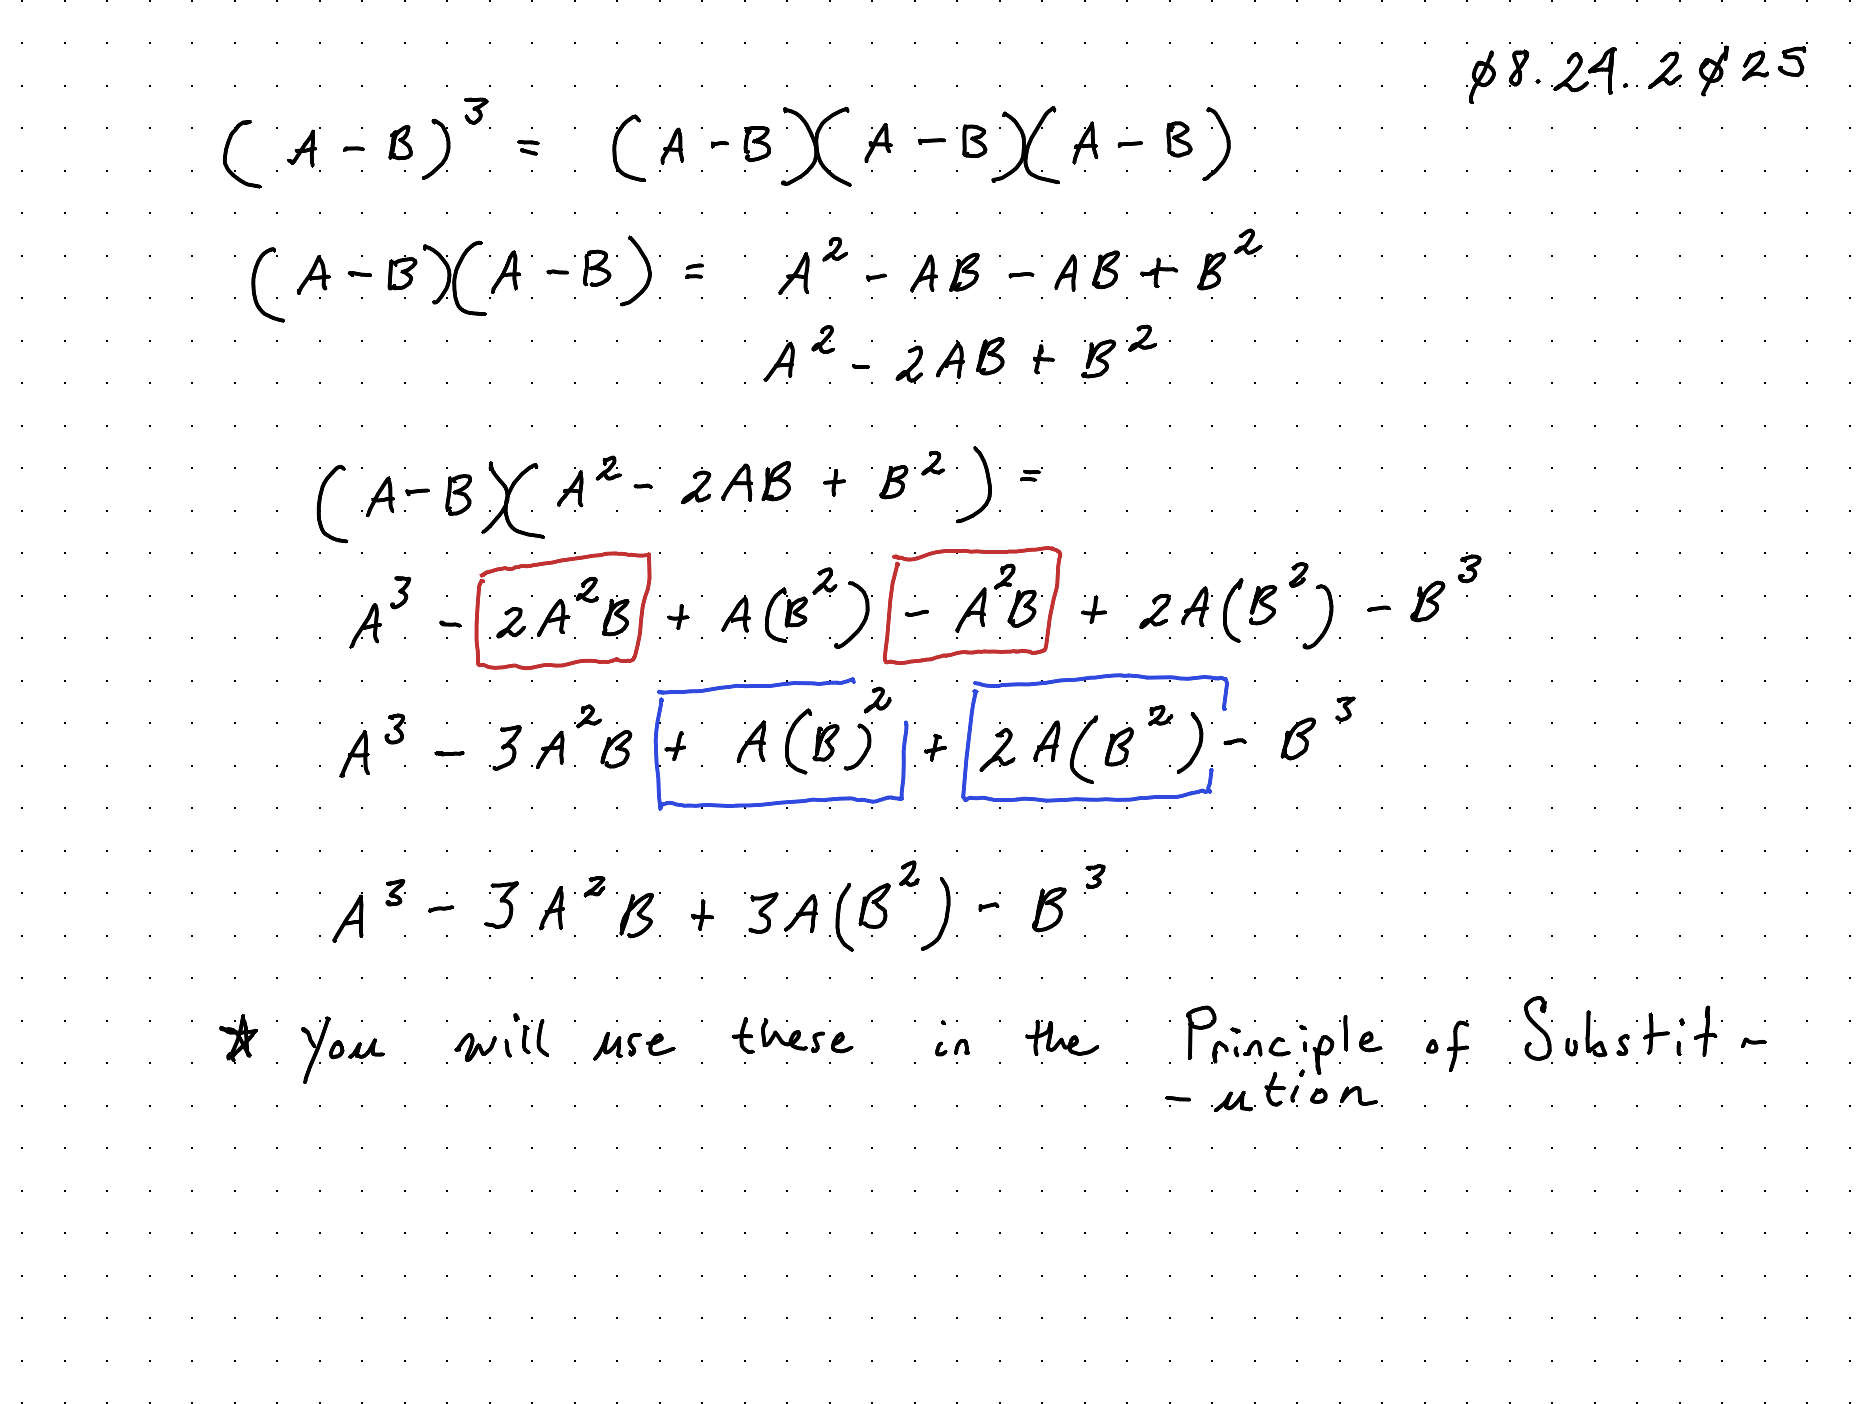 ∅8.24.2∅25
(A - B)³ = (A - B)(A - B)(A - B)
(A - B)(A - B) = A² - AB - AB + B²
A² - 2AB + B²
(A - B)(A² - 2AB + B²) =
A³ - 2A²B + A(B²) - A²B + 2A(B²) - B³
A³ - 3A²B + A(B)² + 2A(B²) - B³
A³ - 3A²B + 3A(B²) - B³
☆ You will use these in the Principle of Substit ~
- ution